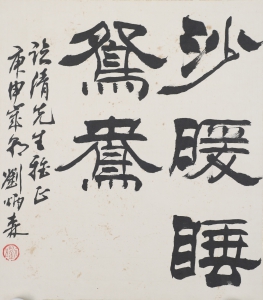 沙暖睡
鴛鴦
詒清先生雅正
庚申年冬劉炳森